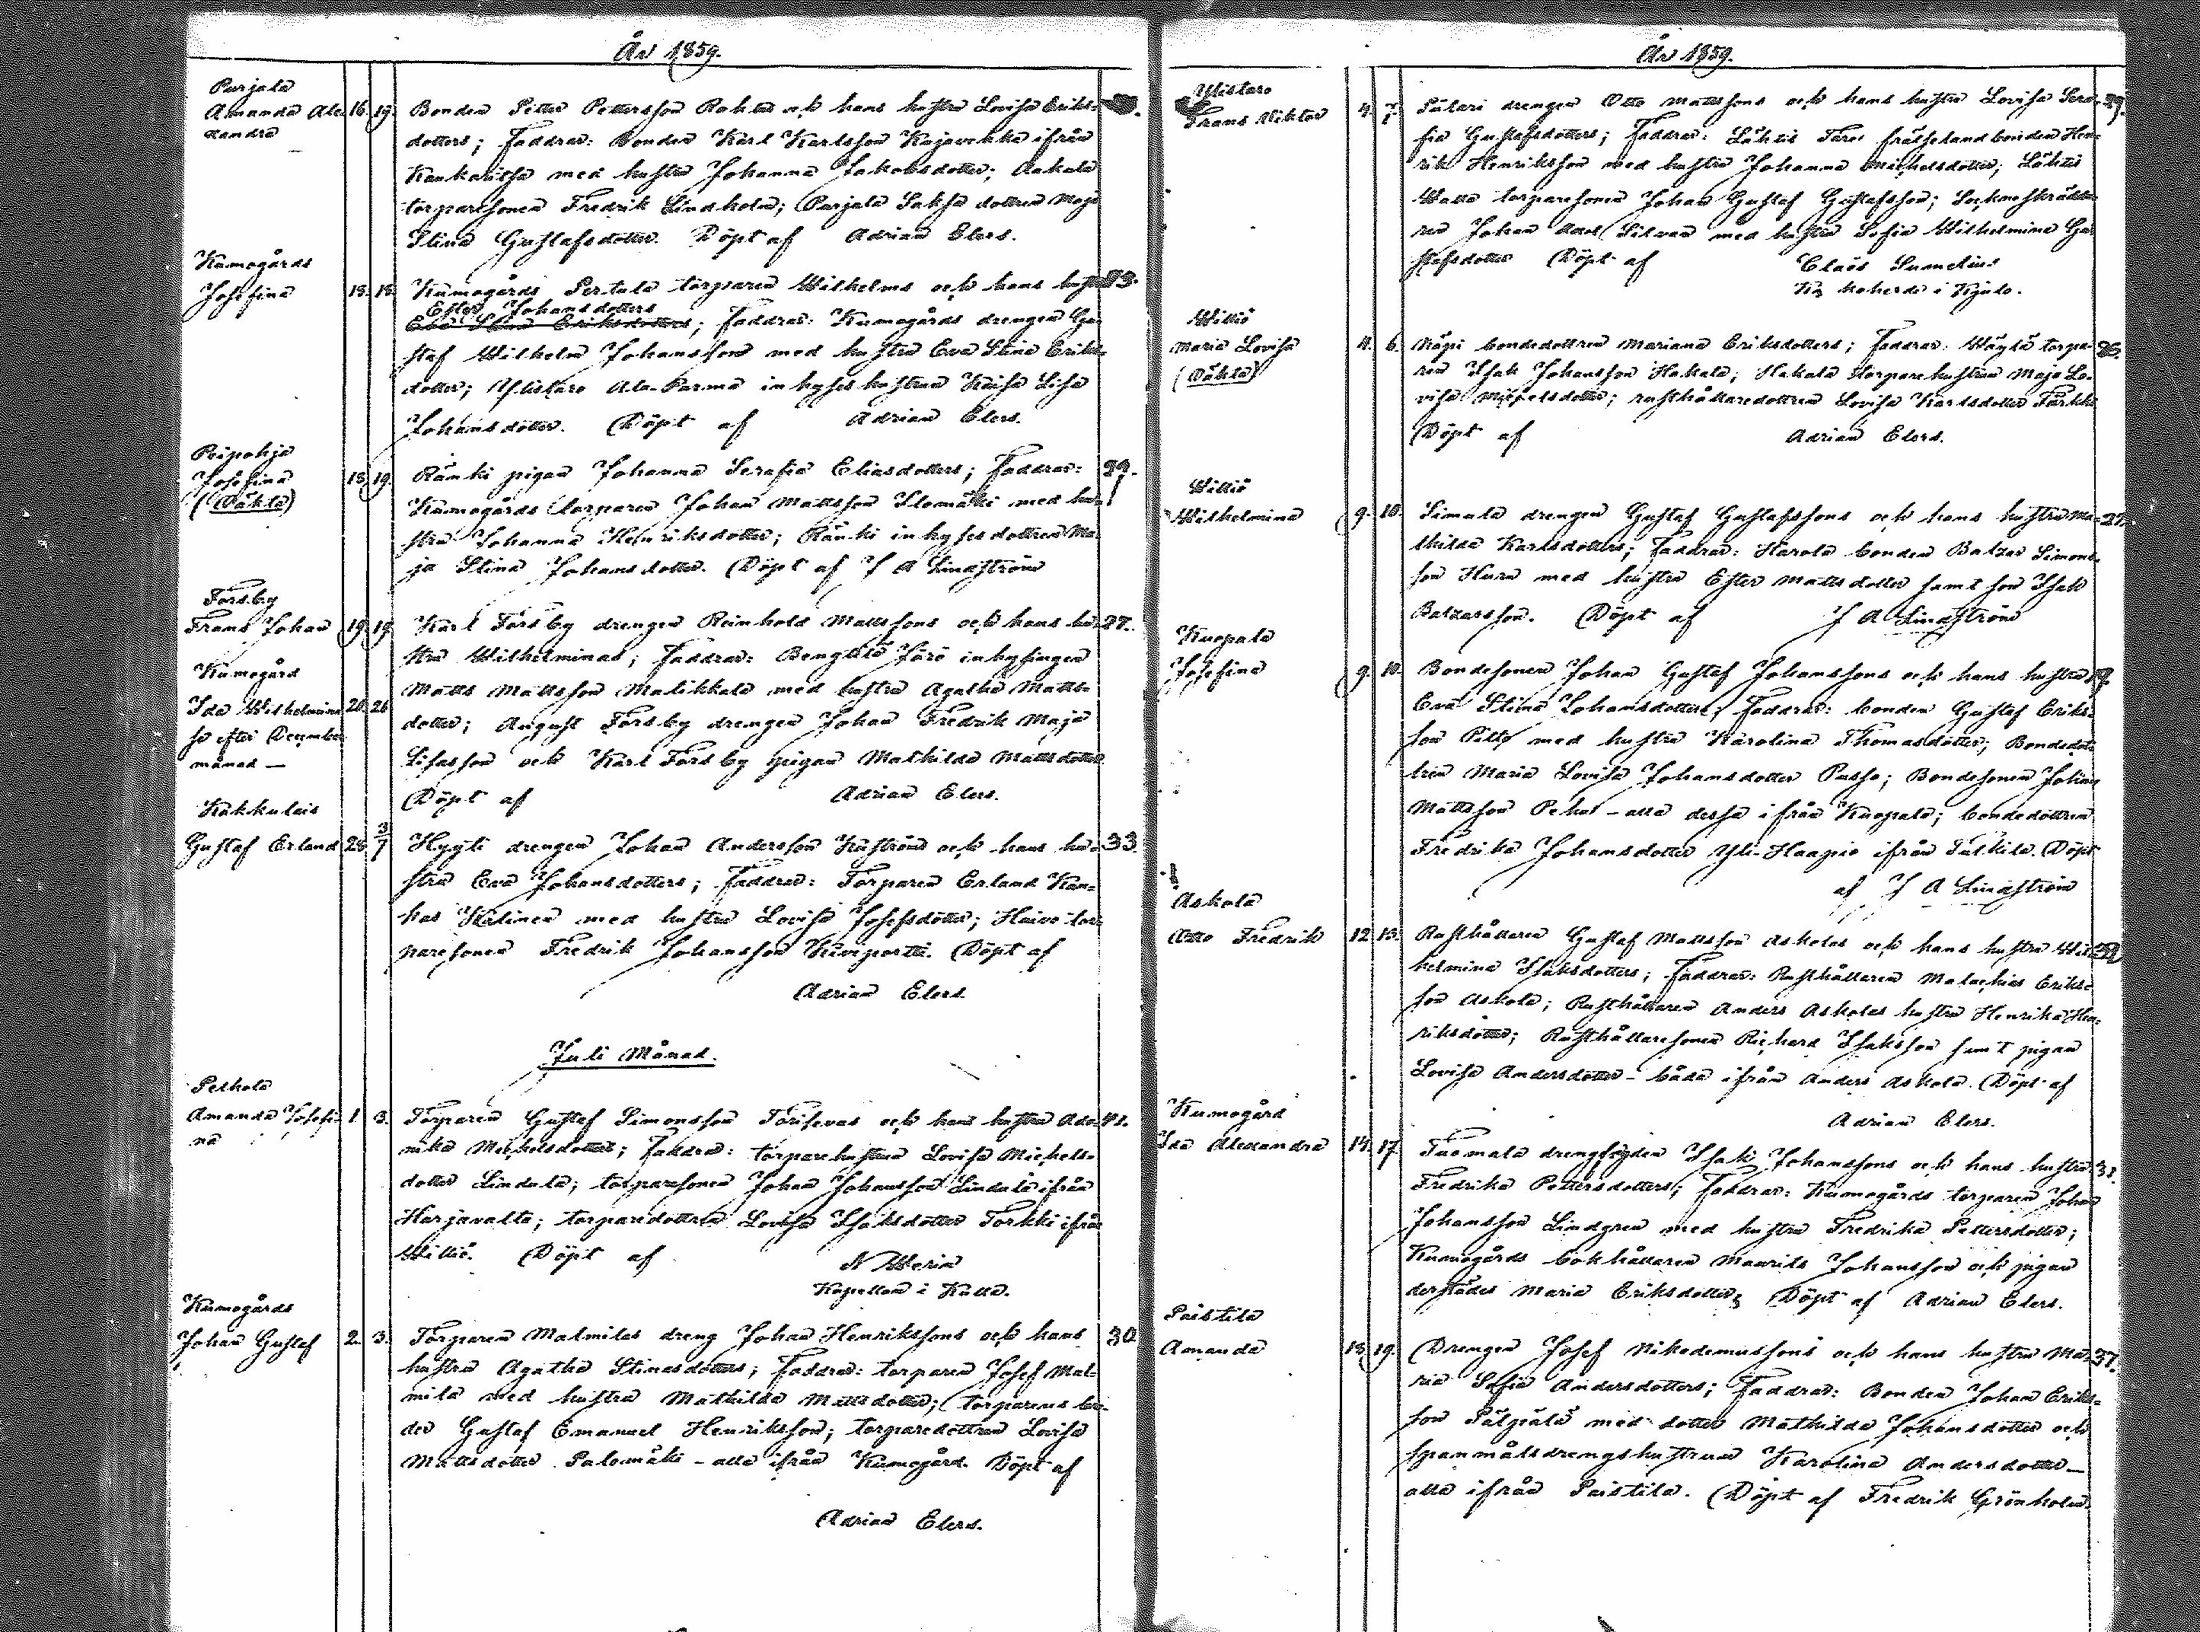 År 1859.
Purjala
Amanda Ale- 16. 19. Bonden Petter Pettersson Rohtes och hans hustru Lovisa Eriks-
xandra dotters; Faddrar: Bonden Karl Karlsson Kajavekka ifrån
Kaukaritsa med hustru Johanna Jakobsdotter; Aakula
torparesonen Fredrik Lindholm; Purjala Saksa dottren Maja
Stina Gustafsdotter. Döpt af Adrian Elers.
Kumogårds
Josefina 18. 18. Kumogårds Pertula torparen Wilhelms och hans hustru
Ester Johansdotters
Eva Stina Eriksdotters; Faddrar: Kumogårds drengen Gu-
staf Wilhelm Johansson med hustru Eva Stina Eriks-
dotter; Ylistaro Ala-Parma inhyses hustrun Kaisa Lisa
Johansdotter. Döpt af Adrian Elers.
Peipohja
Josefina 18. 19. Ränki pigan Johanna Serafia Eliasdotters; Faddrar: 29.
(Oäkta) Kumogårds torparen Johan Mattsson Ilomäki med hu-
stru Johanna Henriksdotter; Ränki inhyses dottren Ma-
ja Stina Johansdotter. Döpt af J A Lindström
Forsby
Frans Johan 19. 19. Karl Forsby drengen Reinhold Mattssons och hans hu- 27.
stru Wilhelminas; Faddrar: Bengtilä Järö inhysingen
Kumogård
Matts Mattsson Malikkala med hustru Agatha Matts-
Ida Wilhelmina 20. 26 dotter; August Forsby drengen Johan Fredrik Maja
se efter December Lisasson och Karl Forsby pigan Mathilda Mattsdotter
månad —
Döpt af Adrian Elers.
Kakkulais
Gustaf Erland 28. 3/7 Hyyti drengen Johan Andersson Kaströms och hans hu- 33.
stru Eva Johansdotters; Faddrar: Torparen Erland Kan-
kas Kalinen med hustru Lovisa Josefsdotter; Haivo tor-
paresonen Fredrik Johansson Kiviportti. Döpt af
Adrian Elers.
Juli Månad.
Pelhola
Amanda Josefi- 1. 3. Torparen Gustaf Simonsson Torisevas och hans hustru Ado- 41.
na nika Michelsdotters; Faddrar: torparehustrun Lovisa Michels-
dotter Lindula; torparesonen Johan Johansson Lindula ifrån
Harjavalta; torparedottren Lovisa Isaksdotter Torkki ifrån
Villiö. Döpt af N Weria
Kapellan i Kulla.
Kumogårds
Johan Gustaf 2. 3. Torparen Malmilas dreng Johan Henrikssons och hans 30
hustru Agatha Stinasdotters; Faddrar: torparen Josef Mal-
mila med hustru Mathilda Mattsdotter; torparens bro-
der Gustaf Emanuel Henriksson; torparedottren Lovisa
Mattsdotter Palomäki – alla ifrån Kumogård. Döpt af
Adrian Elers.
År 1859.
Ylistaro
Frans Viktor drengen Otto Mattssons och hans hustru Lovisa Sera- 29.
fia Gustafsdotters; Faddrar: frälselandbonden Hen-
rik Henriksson med hustru Johanna Michelsdotter;
torparesonen Johan Gustaf Gustafsson; Sockneskrädda-
ren Johan Silvan med hustru Sofia Wilhelmina Gu-
stafsdotter Döpt af
kyrkoherde i Kjulo.
Villiö
Maria Lovisa 4. 6. Näpi bondedottren Mariana Eriksdotters; Faddrar: torpa-
(Oäkta) ren Isak Johansson Hakala; Hakala torparehustrun Maja Lo-
visa Michelsdotter; rusthållaredottren Lovisa Karlsdotter
Döpt af Adrian Elers.
Villiö
Wilhelmina 9. 10. Simula drengen Gustaf Gustafssons och hans hustru Ma-
thilda Karlsdotters; Faddrar: Harola bonden Balzar Simons-
son Hura med hustru Ester Mattsdotter samt son Isak
Balzarsson. Döpt af J A Lindström
Kuopala
Josefina 9. 10. Bondesonen Johan Gustaf Johanssons och hans hustru
Eva Stina Johansdotters; Faddrar: bonden Gustaf Eriks-
son Piltto med hustru Karolina Thomasdotter; Bondedott-
tren Maria Lovisa Johansdotter Passo; Bondesonen Johan
Mattsson Peho – alla dessa ifrån Kuopala; bondedottren
Fredrika Johansdotter Yli-Haapio ifrån Tulkila. Döpt
af J A Lindström
Askola
Otto Fredrik 12 13. Rusthållaren Gustaf Mattsson Askolas och hans hustru Wil-
helmina Isaksdotters; Faddrar: Rusthållaren Malachias Eriks-
son Askola; Rusthållaren Anders Askolas hustru Henrika Hen-
riksdotter; Rusthållaresonen Richard Isaksson samt pigan
Lovisa Andersdotter – båda ifrån Anders Askola. Döpt af
Adrian Elers.
Kumogård
Ida Alexandra 14. 17. Tuomala drengfogden Isak Johanssons och hans hustru
Fredrika Pettersdotters; Faddrar: Kumogårds torparen Johan
Johansson Lindgren med hustru Fredrika Pettersdotter;
Kumogårds bokhållaren Maurits Johansson och pigan
derstädes Maria Eriksdotter; Döpt af Adrian Elers.
Paistila
Amanda 18. 19. Drengen Josef Nikodemussons och hans hustru Ma- 37.
ria Sofia Andersdotters; Faddrar: Bonden Johan Eriks-
son Pälpälä med dotter Mathilda Johansdotter och
spanmålsdrengshustrun Karolina Andersdotter —
alla ifrån Paistila. Döpt af Fredrik Grönholm.